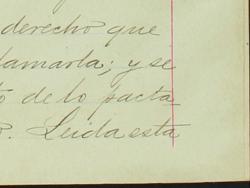 derecho que
lamarla; y se
de lo pacta
R. Leida esta